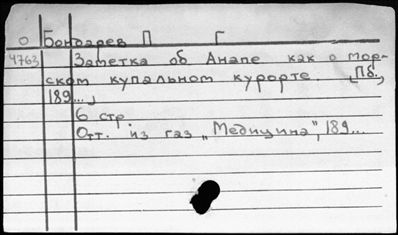 О Бондарев П Г
4763 Заметка об Анапе как о мор-
ском купальном курорте. [Пб.
189...]
6 стр.
Отт. из газ „Медицина", 189...